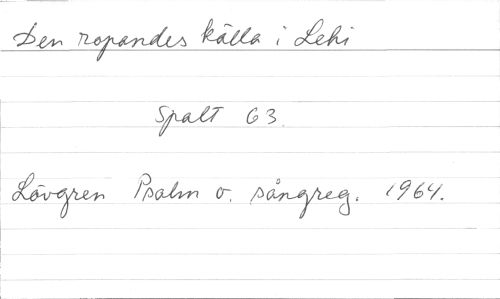 Den ropandes källa i Lehi
Spalt 63.
Lövgren Psalm o. sångreg. 1964.